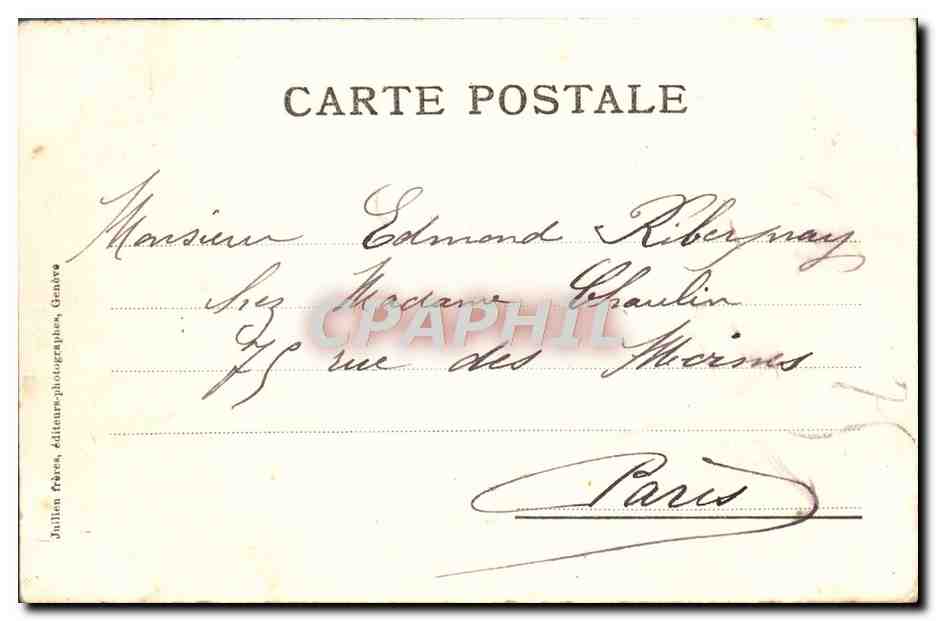 CARTE POSTALE
Monsieur Edmond Ribernay
chez Madame Chaulin
75 rue des
Paris
Julien frères, éditeurs-photographes, Genève
CPAPHIL